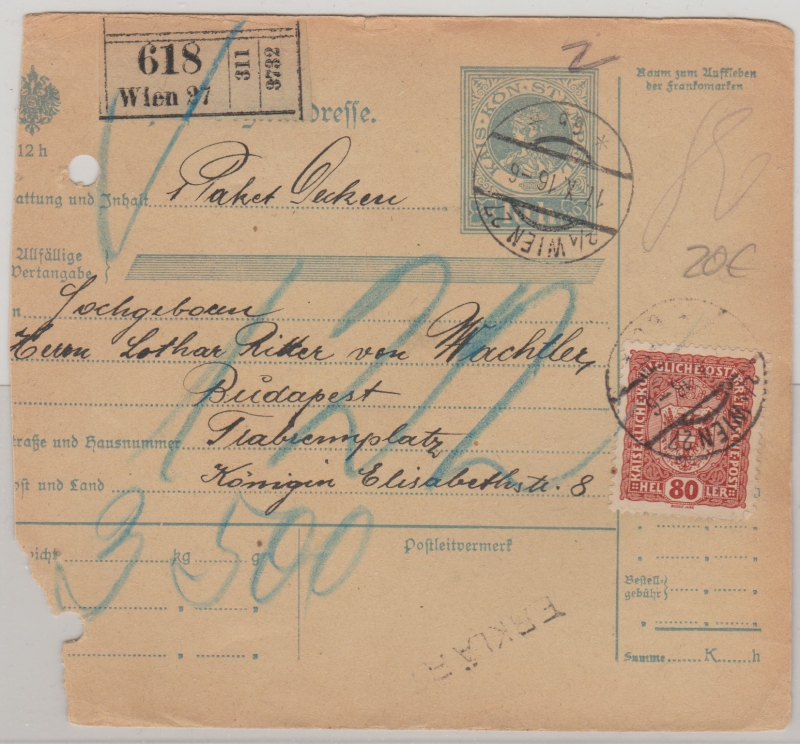 618
Wien 27
311
3732
dresse.
12 h
KAIS·KÖN·ST
Raum zum Aufkleben
der Frankomarken
2/1 WIEN 27
17.X.16-6
attung und Inhalt
1 Paket Decken
Allfällige
Wertangabe
20€
n
Hochgeboren
Herrn Lothar Ritter von Wachtler,
Budapest
straße und Hausnummer
Königin Elisabethstr. 8
ost und Land
120
3 500
WIEN 27
KAISERLICHE KÖNIGLICHE ÖSTERREICHISCHE POST
HELLER
80
wicht
kg
g
Postleitvermerk
ERKLÄR
Bestell-
gebühr
Summe
K
h